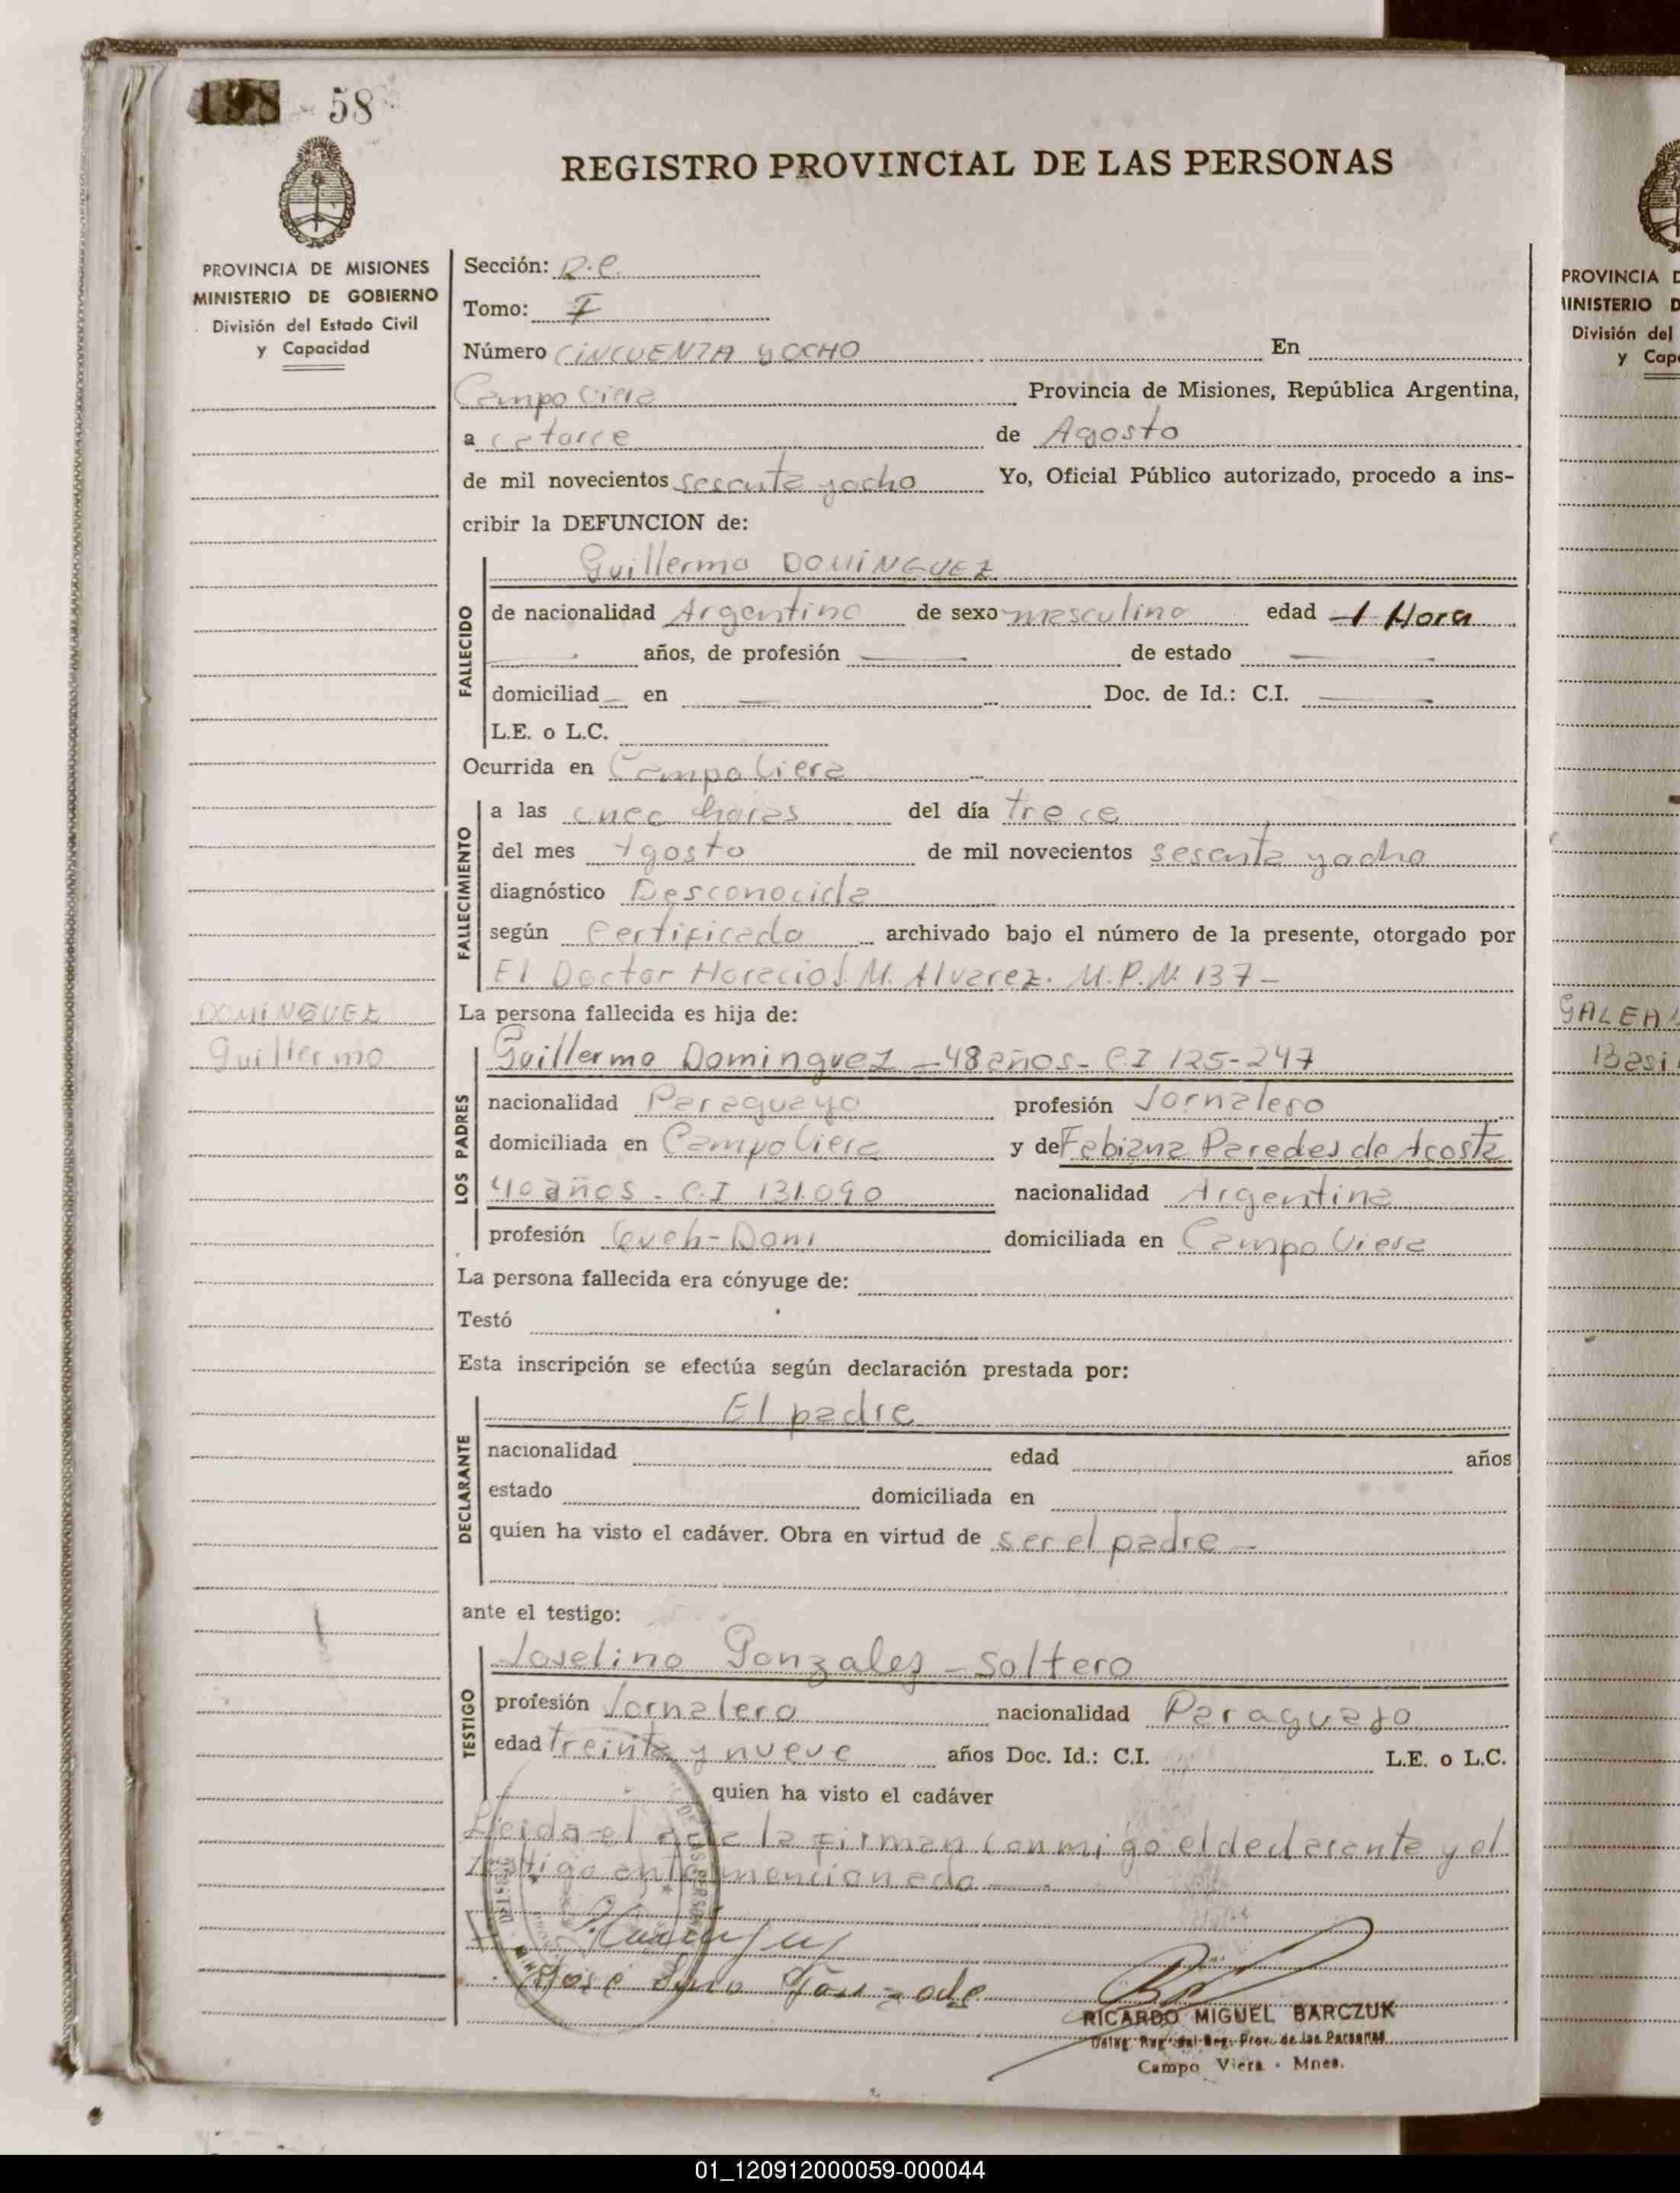 198 - 58
REGISTRO PROVINCIAL DE LAS PERSONAS
PROVINCIA DE MISIONES
MINISTERIO DE GOBIERNO
División del Estado Civil
y Capacidad
Sección: R.C.
Tomo: I
Número CINCUENTA y OCHO En
Campo Viera Provincia de Misiones, República Argentina,
a catorce de Agosto
de mil novecientos sesenta y ocho Yo, Oficial Público autorizado, procedo a ins-
cribir la DEFUNCION de:
FALLECIDO
Guillermo DOMINGUEZ
de nacionalidad Argentino de sexo masculino edad 1 Hora
años, de profesión de estado
domiciliad en Doc. de Id.: C.I.
L.E. o L.C.
Ocurrida en Campo Viera
FALLECIMIENTO
a las cinco horas del día trece
del mes Agosto de mil novecientos sesenta y ocho
diagnóstico Desconocida
según Certificado archivado bajo el número de la presente, otorgado por
El Doctor Horacio J. M. Alvarez. M.P.N. 137 -
DOMINGUEZ
Guillermo
La persona fallecida es hija de:
LOS PADRES
Guillermo Dominguez - 48 años - C.I 125-247
nacionalidad Paraguayo profesión Jornalero
domiciliada en Campo Viera y de Fabiana Paredes de Acosta
40 años - C.I 131.090 nacionalidad Argentina
profesión Queh-Dom domiciliada en Campo Viera
La persona fallecida era cónyuge de:
Testó
Esta inscripción se efectúa según declaración prestada por:
DECLARANTE
El padre
nacionalidad edad años
estado domiciliada en
quien ha visto el cadáver. Obra en virtud de ser el padre -
ante el testigo:
TESTIGO
Joselino Gonzales - Soltero
profesión Jornalero nacionalidad Paraguayo
edad treinta y nueve años Doc. Id.: C.I. L.E. o L.C.
quien ha visto el cadáver
Leida el acta la firman conmigo el declarante y el
testigo antemencionado
José Gonzale
RICARDO MIGUEL BARCZUK
Reg. Prov. de las Personas
Campo Viera - Mnes.
PROVINCIA D
MINISTERIO D
División del
y Cap
GALEA
Basi
01_120912000059-000044